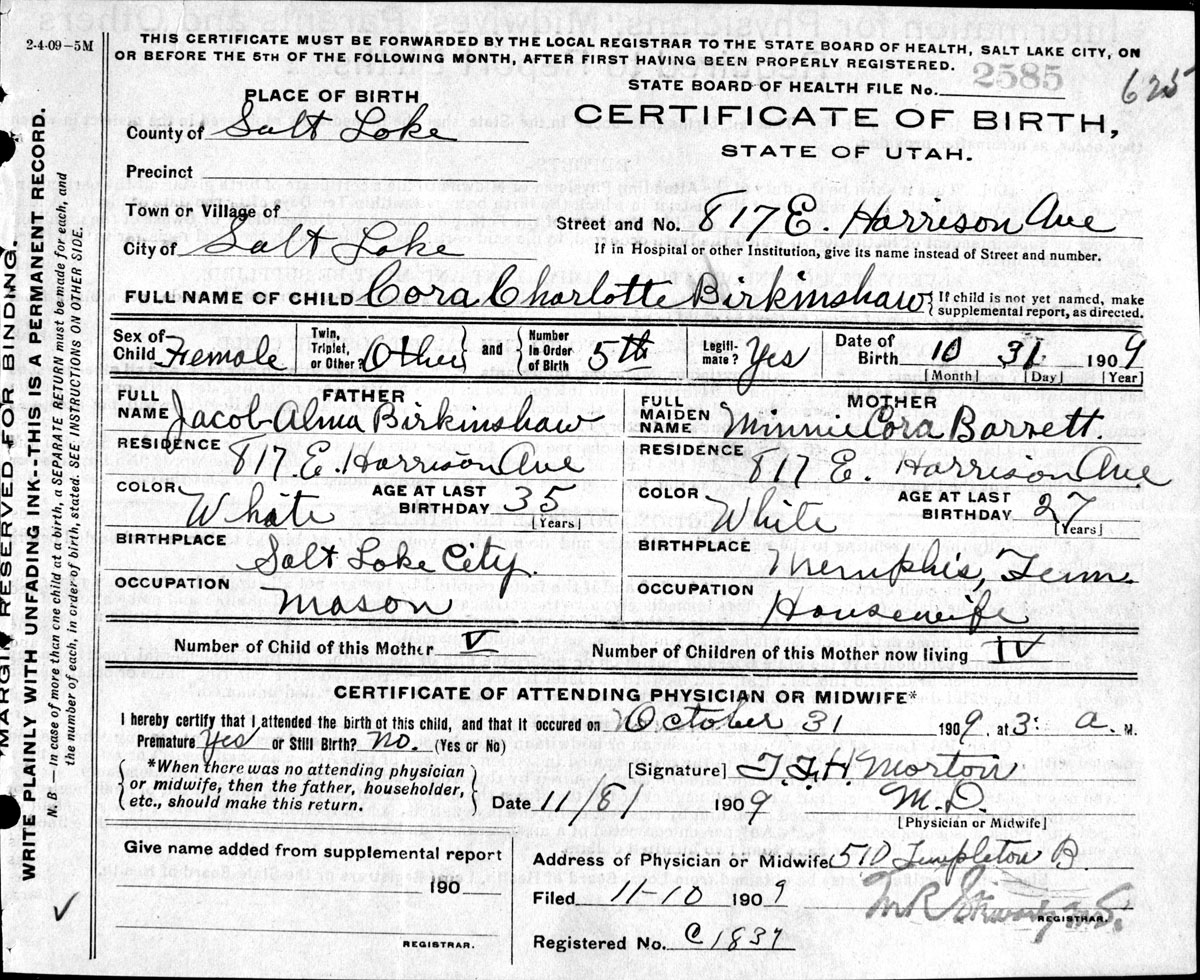 2-4-09-5M
THIS CERTIFICATE MUST BE FORWARDED BY THE LOCAL REGISTRAR TO THE STATE BOARD OF HEALTH, SALT LAKE CITY, ON
OR BEFORE THE 5TH OF THE FOLLOWING MONTH, AFTER FIRST HAVING BEEN PROPERLY REGISTERED.
STATE BOARD OF HEALTH FILE No. 2585
625
PLACE OF BIRTH
CERTIFICATE OF BIRTH,
STATE OF UTAH.
County of Salt Lake
Precinct
Town or Village of
Street and No. 817 E. Harrison Ave
City of Salt Lake
If in Hospital or other Institution, give its name instead of Street and number.
FULL NAME OF CHILD Cora Charlotte Birkinshaw { If child is not yet named, make supplemental report, as directed.
Sex of Child Female Twin, Triplet, or Other? Other } and { Number in Order of Birth 5th Legiti-mate? Yes Date of Birth 10 31 1909
[Month] [Day] [Year]
FATHER
FULL NAME Jacob Alma Birkinshaw
RESIDENCE 817 E. Harrison Ave
COLOR White AGE AT LAST BIRTHDAY 35
[Years]
BIRTHPLACE Salt Lake City.
OCCUPATION Mason
MOTHER
FULL MAIDEN NAME Minnie Cora Barrett.
RESIDENCE 817 E. Harrison Ave
COLOR White AGE AT LAST BIRTHDAY 27
[Years]
BIRTHPLACE Memphis, Tenn.
OCCUPATION Housewife
Number of Child of this Mother V Number of Children of this Mother now living IV
CERTIFICATE OF ATTENDING PHYSICIAN OR MIDWIFE*
I hereby certify that I attended the birth of this child, and that it occured on October 31 1909, at 3: a. M.
Premature Yes or Still Birth? No. (Yes or No)
{ *When there was no attending physician
or midwife, then the father, householder,
etc., should make this return. }
[Signature] T.F.H. Morton
M.D.
[Physician or Midwife]
Date 11/8/ 1909
Give name added from supplemental report
190
REGISTRAR.
Address of Physician or Midwife 510 Templeton B
Filed 11-10 1909
REGISTRAR.
Registered No. C1837
MARGIN RESERVED FOR BINDING.
WRITE PLAINLY WITH UNFADING INK--THIS IS A PERMANENT RECORD.
N. B — in case of more than one child at a birth, a SEPARATE RETURN must be made for each, and
the number of each, in order of birth, stated. SEE INSTRUCTIONS ON OTHER SIDE.